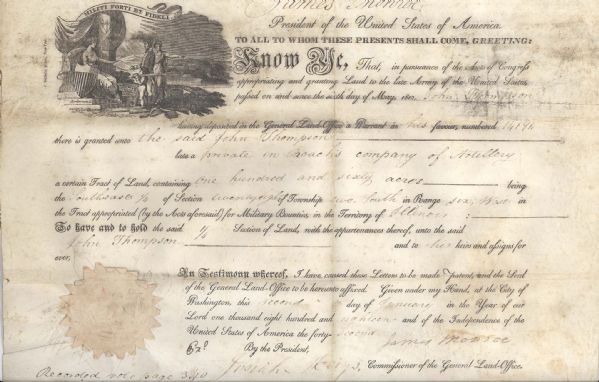 James Monroe
MILITI FORTI ET FIDELI
President of the United States of America
TO ALL TO WHOM THESE PRESENTS SHALL COME, GREETING:
Know Ye, That, in pursuance of the Acts of Congress
appropriating and granting Land to the late Army of the United States,
passed on and since the sixth day of May, 1812, John Thompson
having deposited in the General Land-Office a Warrant in his favour, numbered
there is granted unto the said John Thompson
late a private in Roach's company of Artillery
a certain Tract of Land, containing One hundred and sixty acres being
the Southeast 1/4 of Section twenty eight of Township two South in Range six West in
the Tract appropriated (by the Acts aforesaid) for Military Bounties, in the Territory of Illinois :
To have and to hold the said 1/4 Section of Land, with the appurtenances thereof, unto the said
John Thompson and to his heirs and assigns for
ever,
In Testimony whereof, I have caused these Letters to be made patent, and the Seal
of the General Land-Office to be hereunto affixed. Given under my Hand, at the City of
Washington, this second day of January in the Year of our
Lord one thousand eight hundred and eighteen and of the Independence of the
United States of America the forty-second
James Monroe
By the President,
Commissioner of the General Land-Office.
Recorded vol. page 340